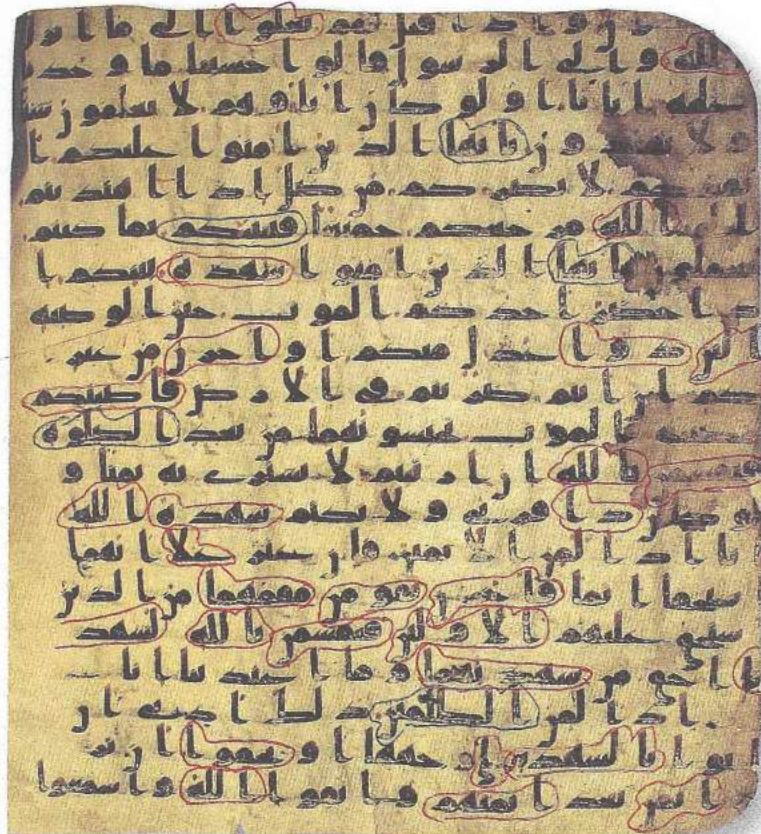 واذا قيل لهم تعلوا الى ما انزل
الله والى الرسول قالوا حسبنا ما وجدنا
عليه ابانا اولو كان اباوهم لا يعلمون شيا
ولا يهتدون يايها الذين امنوا عليكم ا
نفسكم لا يضركم من ضل اذا اهتديتم
الى الله مرجعكم جميعا فينبيكم بما كنتم
تعملون يايها الذين امنوا شهدة بينكم ا
ذا حضر احدكم الموت حين الوصية
اثنن ذوا عدل منكم او اخرن من غير
كم ان انتم ضربتم في الارض فاصبتكم
مصيبة الموت تحبسونهما من بعد الصلوة
فيقسمن بالله ان ارتبتم لا نشتري به ثمنا و
لو كان ذا قربى ولا نكتم شهدة الله
انا اذا لمن الاثمين فان عثر علا انهما
استحقا اثما فاخرن يقومن مقمهما من الذين
استحق عليهم الاولين فيقسمن بالله لشهد
تنا احق من شهدتهما وما اعتدينا ا
نا اذا لمن الظلمين ذلك ادنى ان
ياتوا بالشهدة على وجهها او يخفوا ان تر
د ايمن بعد ايمنهم واتقوا الله واسمعوا